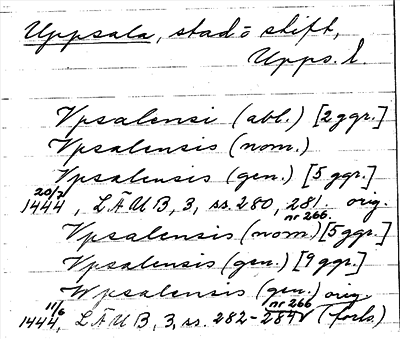 Uppsala, stad o stift,
Upps. l.
Vpsalensi (abl.) [2 ggr.]
Vpsalensis (nom.)
Vpsalensis (gen.) [5 ggr.]
20/2
1444, LÄUB, 3, ss. 280, 281. orig.
nr 266.
Vpsalensis (nom) [5 ggr.]
Vpsalensis (gen.) [9 ggr.]
Wpsalensis (gen.) orig.
11/6 nr 266
1444, LÄUB, 3, ss. 282-284